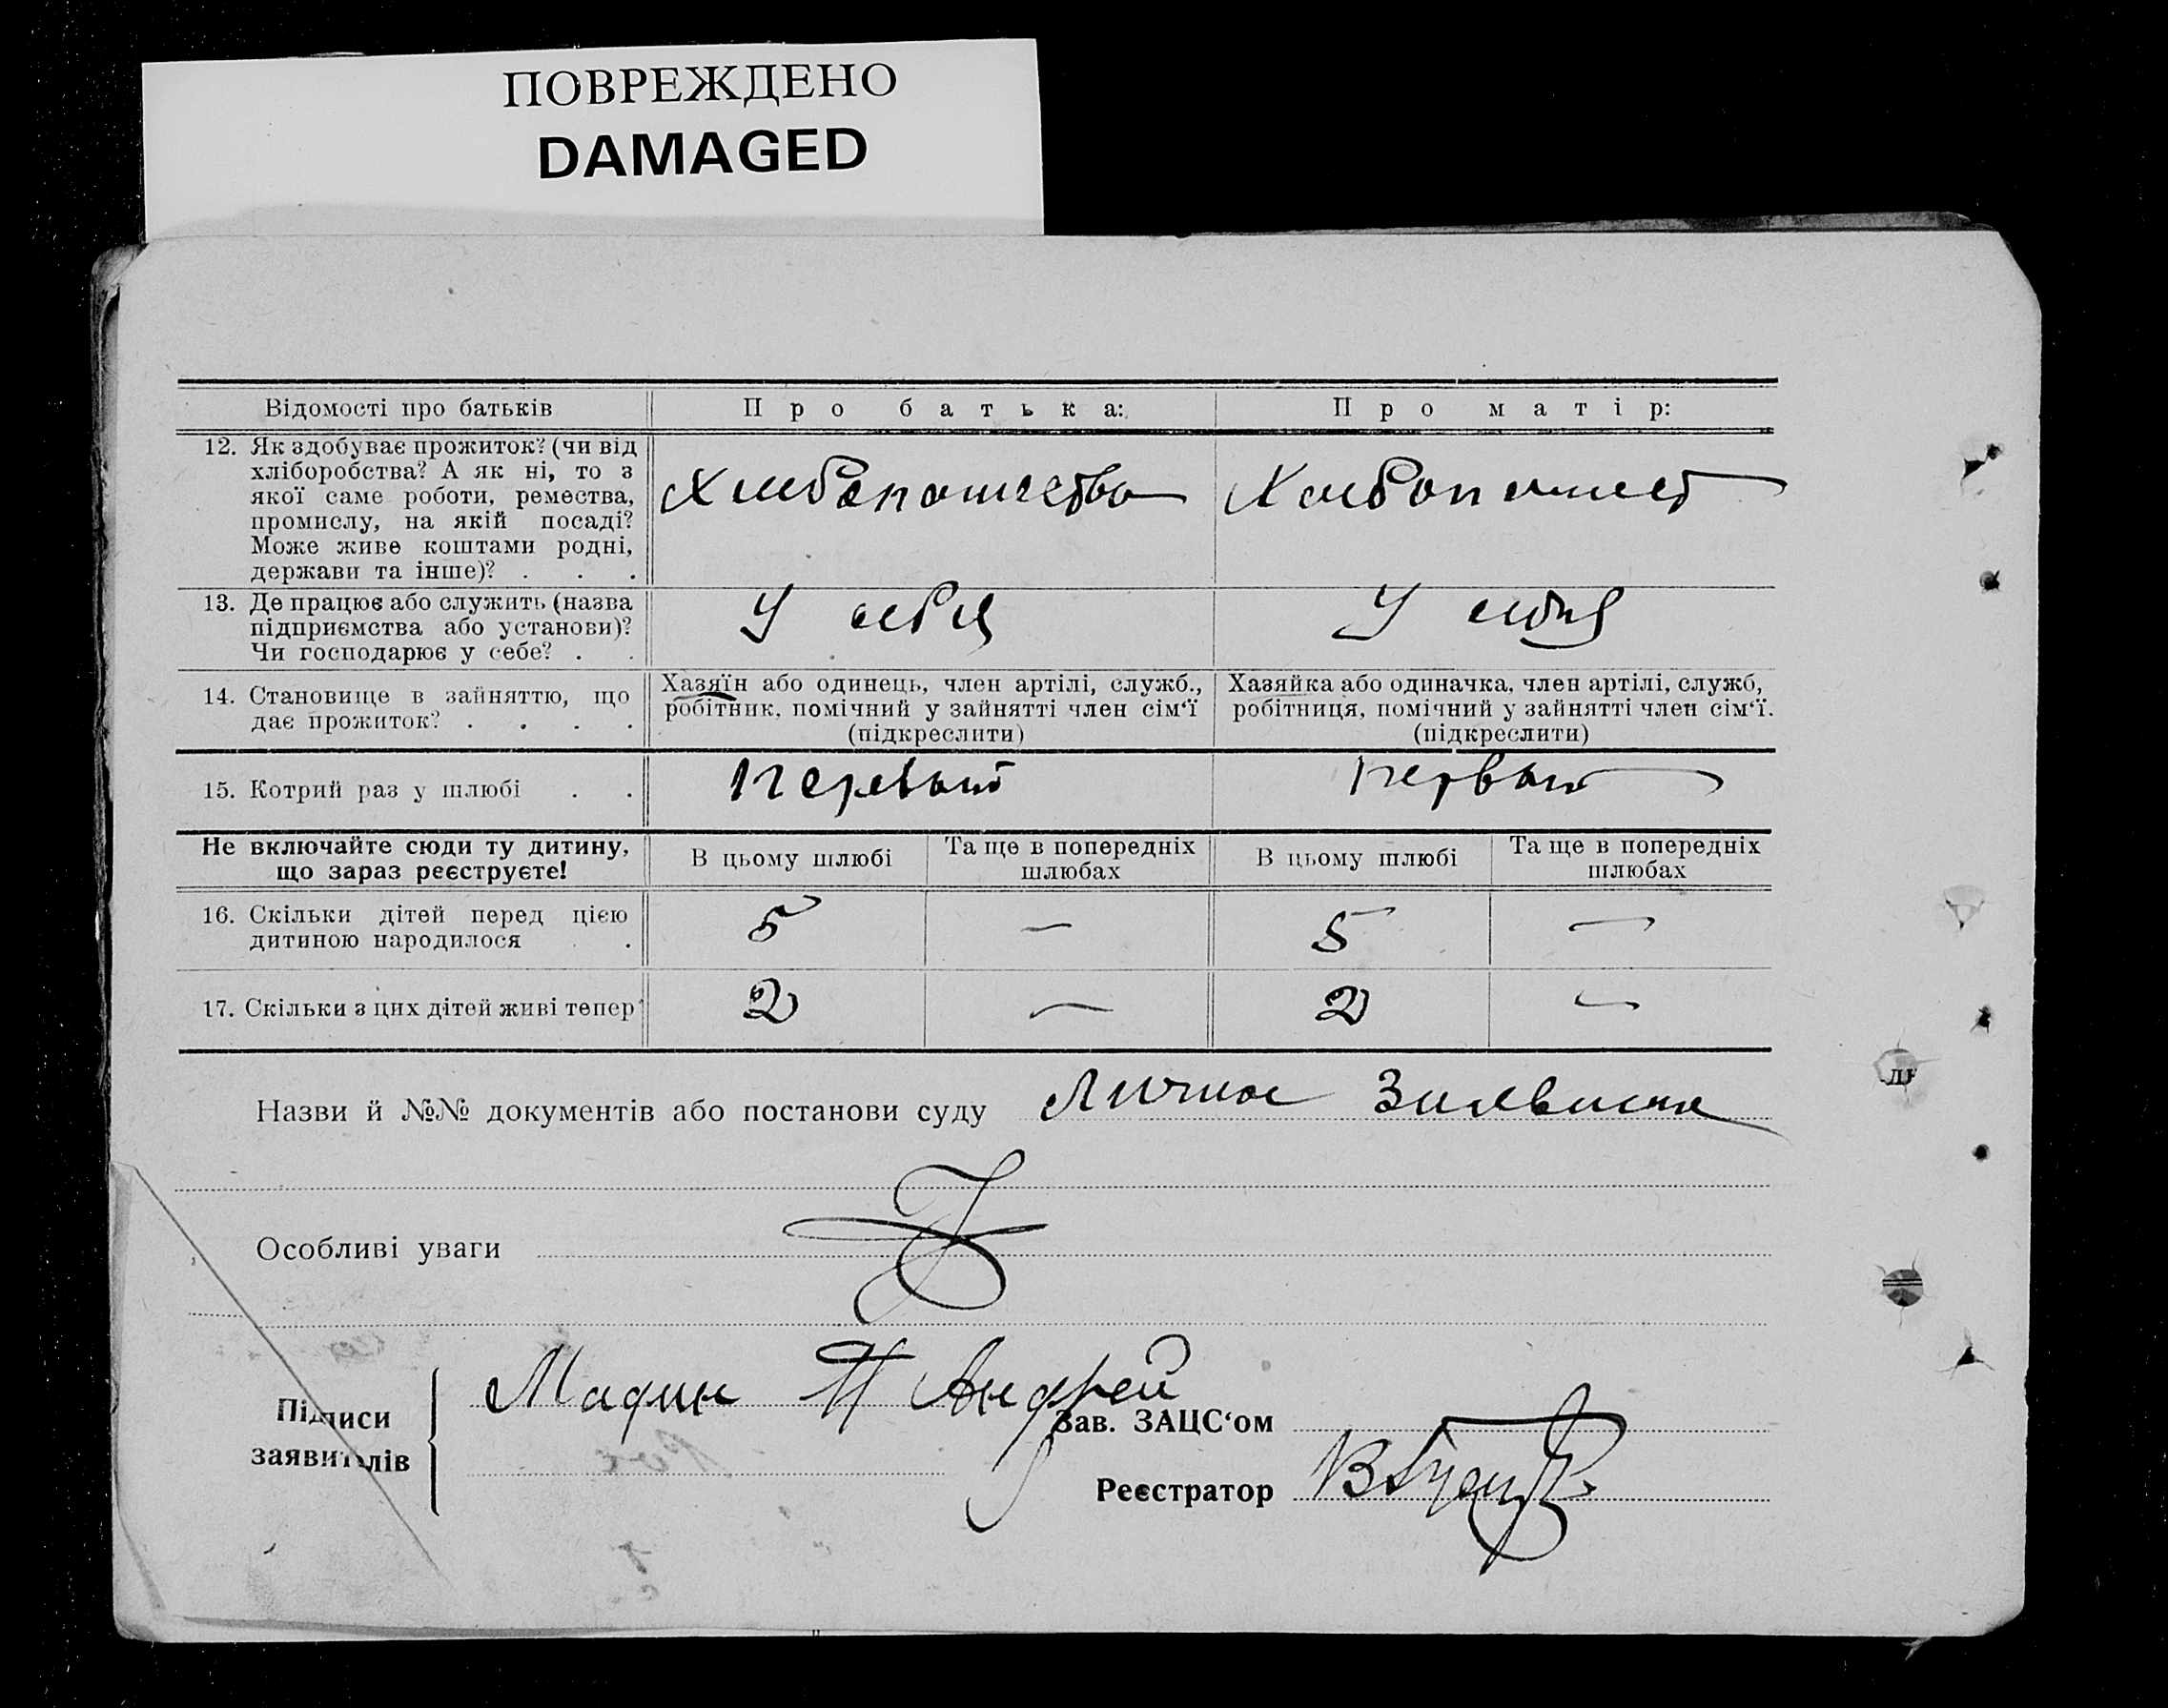 ПОВРЕЖДЕНО
DAMAGED
Відомості про батьків
Про батька:
Про матір:
12. Як здобуває прожиток? (чи від
хліборобства? А як ні, то з
якої саме роботи, ремества,
промислу, на якій посаді?
Може живе коштами родні,
держави та інше)? . . .
Хлебопашество
Хлебопашест
13. Де працює або служить (назва
підприємства або установи)?
Чи господарює у себе? . .
У себя
У себя
14. Становище в зайняттю, що
дає прожиток? . . . .
Хазяїн або одинець, член артілі, служб.,
робітник, помічний у зайнятті член сім‘ї
(підкреслити)
Хазяйка або одиначка, член артілі, служб,
робітниця, помічний у зайнятті член сім‘ї.
(підкреслити)
15. Котрий раз у шлюбі . .
Первый
Первый
Не включайте сюди ту дитину,
що зараз реєструєте!
В цьому шлюбі
Та ще в попередніх
шлюбах
В цьому шлюбі
Та ще в попередніх
шлюбах
16. Скільки дітей перед цією
дитиною народилося . .
5 — 5 —
17. Скільки з цих дітей живі тепер?
2 — 2 —
Назви й №№ документів або постанови суду Личное Заявление
Особливі уваги
Підписи
заявителів
Мадин П Андрей
Зав. ЗАЦС‘ом
Реєстратор